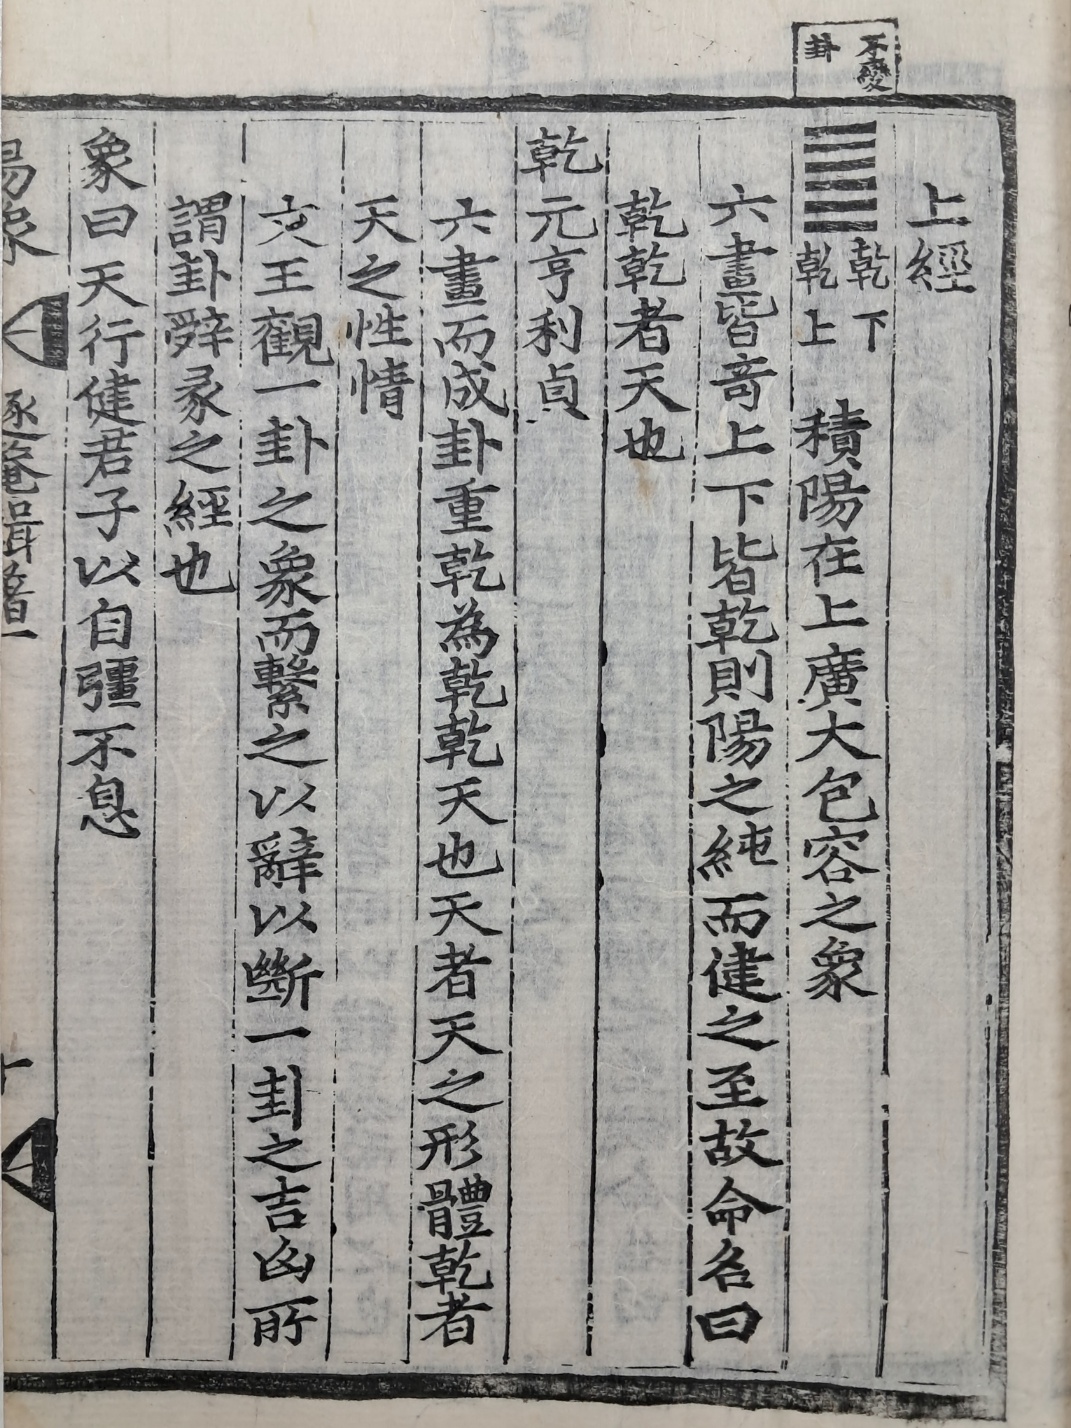 不變
卦
上經
乾下
乾上
積陽在上廣大包容之象
六畫皆竒上下皆乾則陽之純而健之至故命名曰
乾乾者天也
乾元亨利貞
六畫而成卦重乾為乾乾天也天者天之形體乾者
天之性情
文王觀一卦之象而繫之以辭以斷一卦之吉凶所
謂卦辤彖之經也
象曰天行健君子以自彊不息
易象
一
十